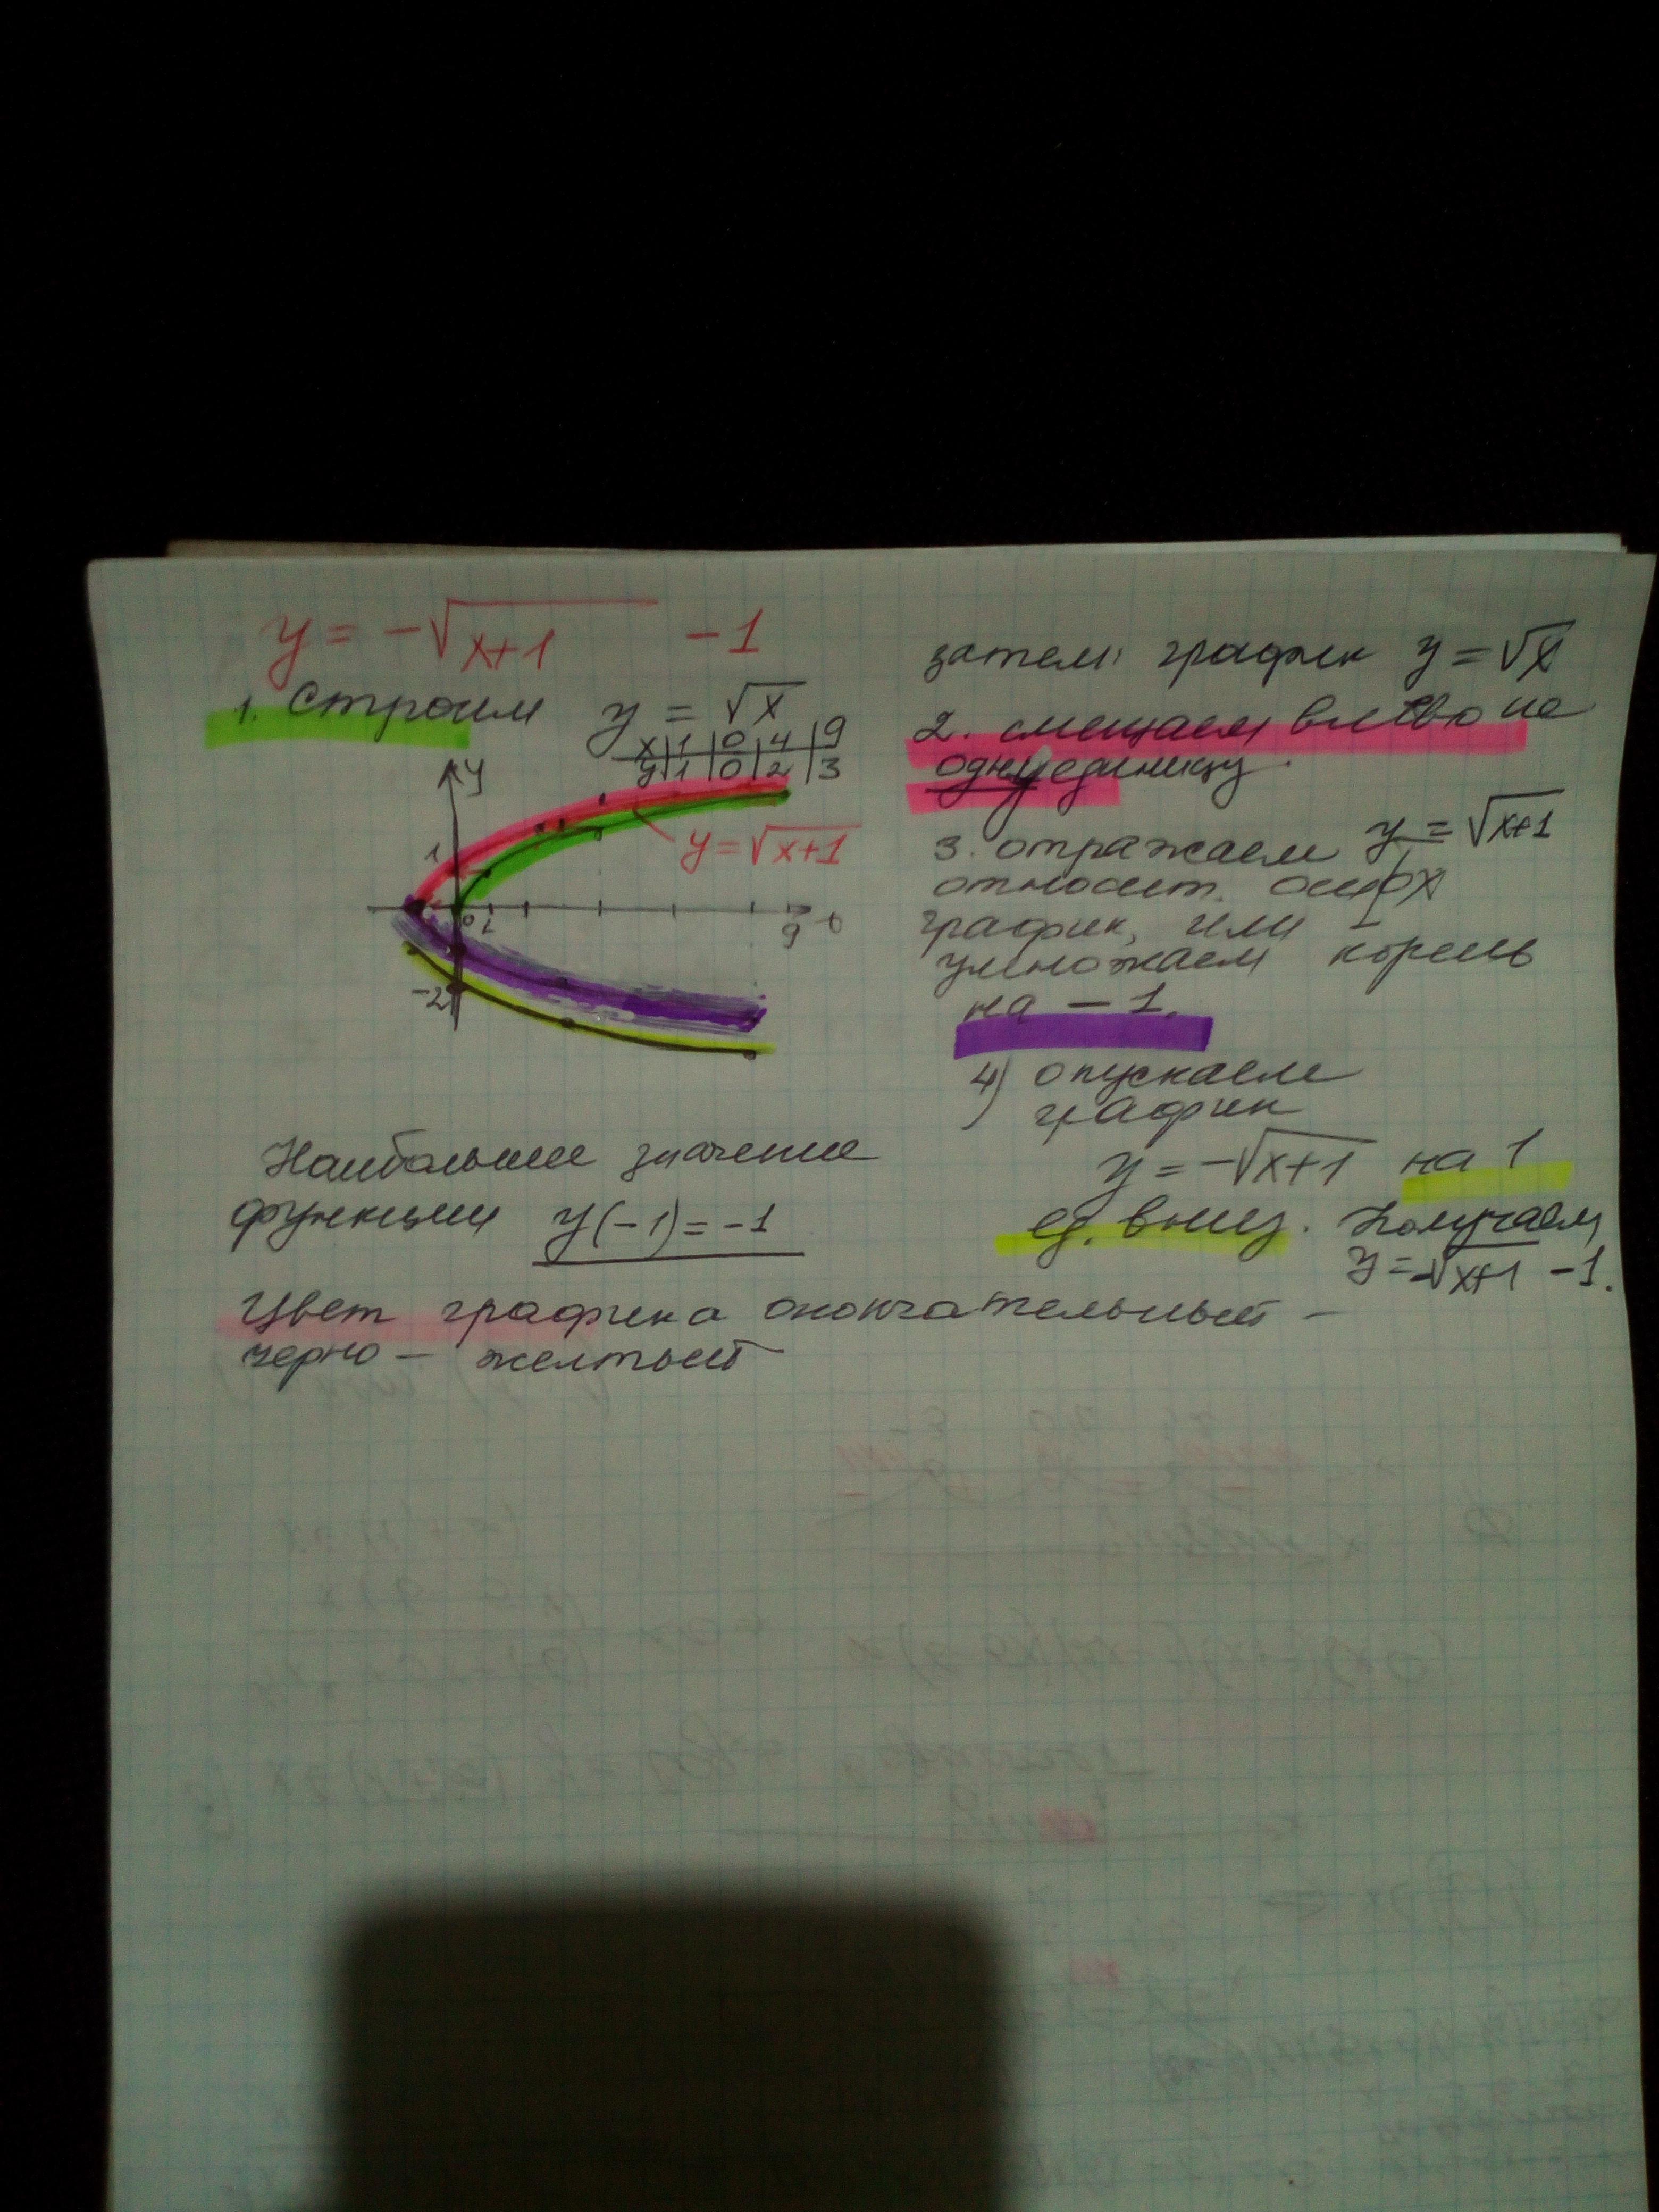 y = -√x+1 - 1
1. Строим y = √x
x | 1 | 0 | 4 | 9
y | 1 | 0 | 2 | 3
y
y = √x+1
1
0 1
9
-2
Наибольшее значение
функции y(-1) = -1
Цвет графика окончательный -
черно - желтый
затем график y = √x
2. смещаем влево на
одну единицу.
3. отражаем y = √x+1
относит. оси ox
график, или
умножаем корень
на - 1.
4) опускаем
график
y = -√x+1 на 1
ед. вниз. Получаем
y = -√x+1 - 1.